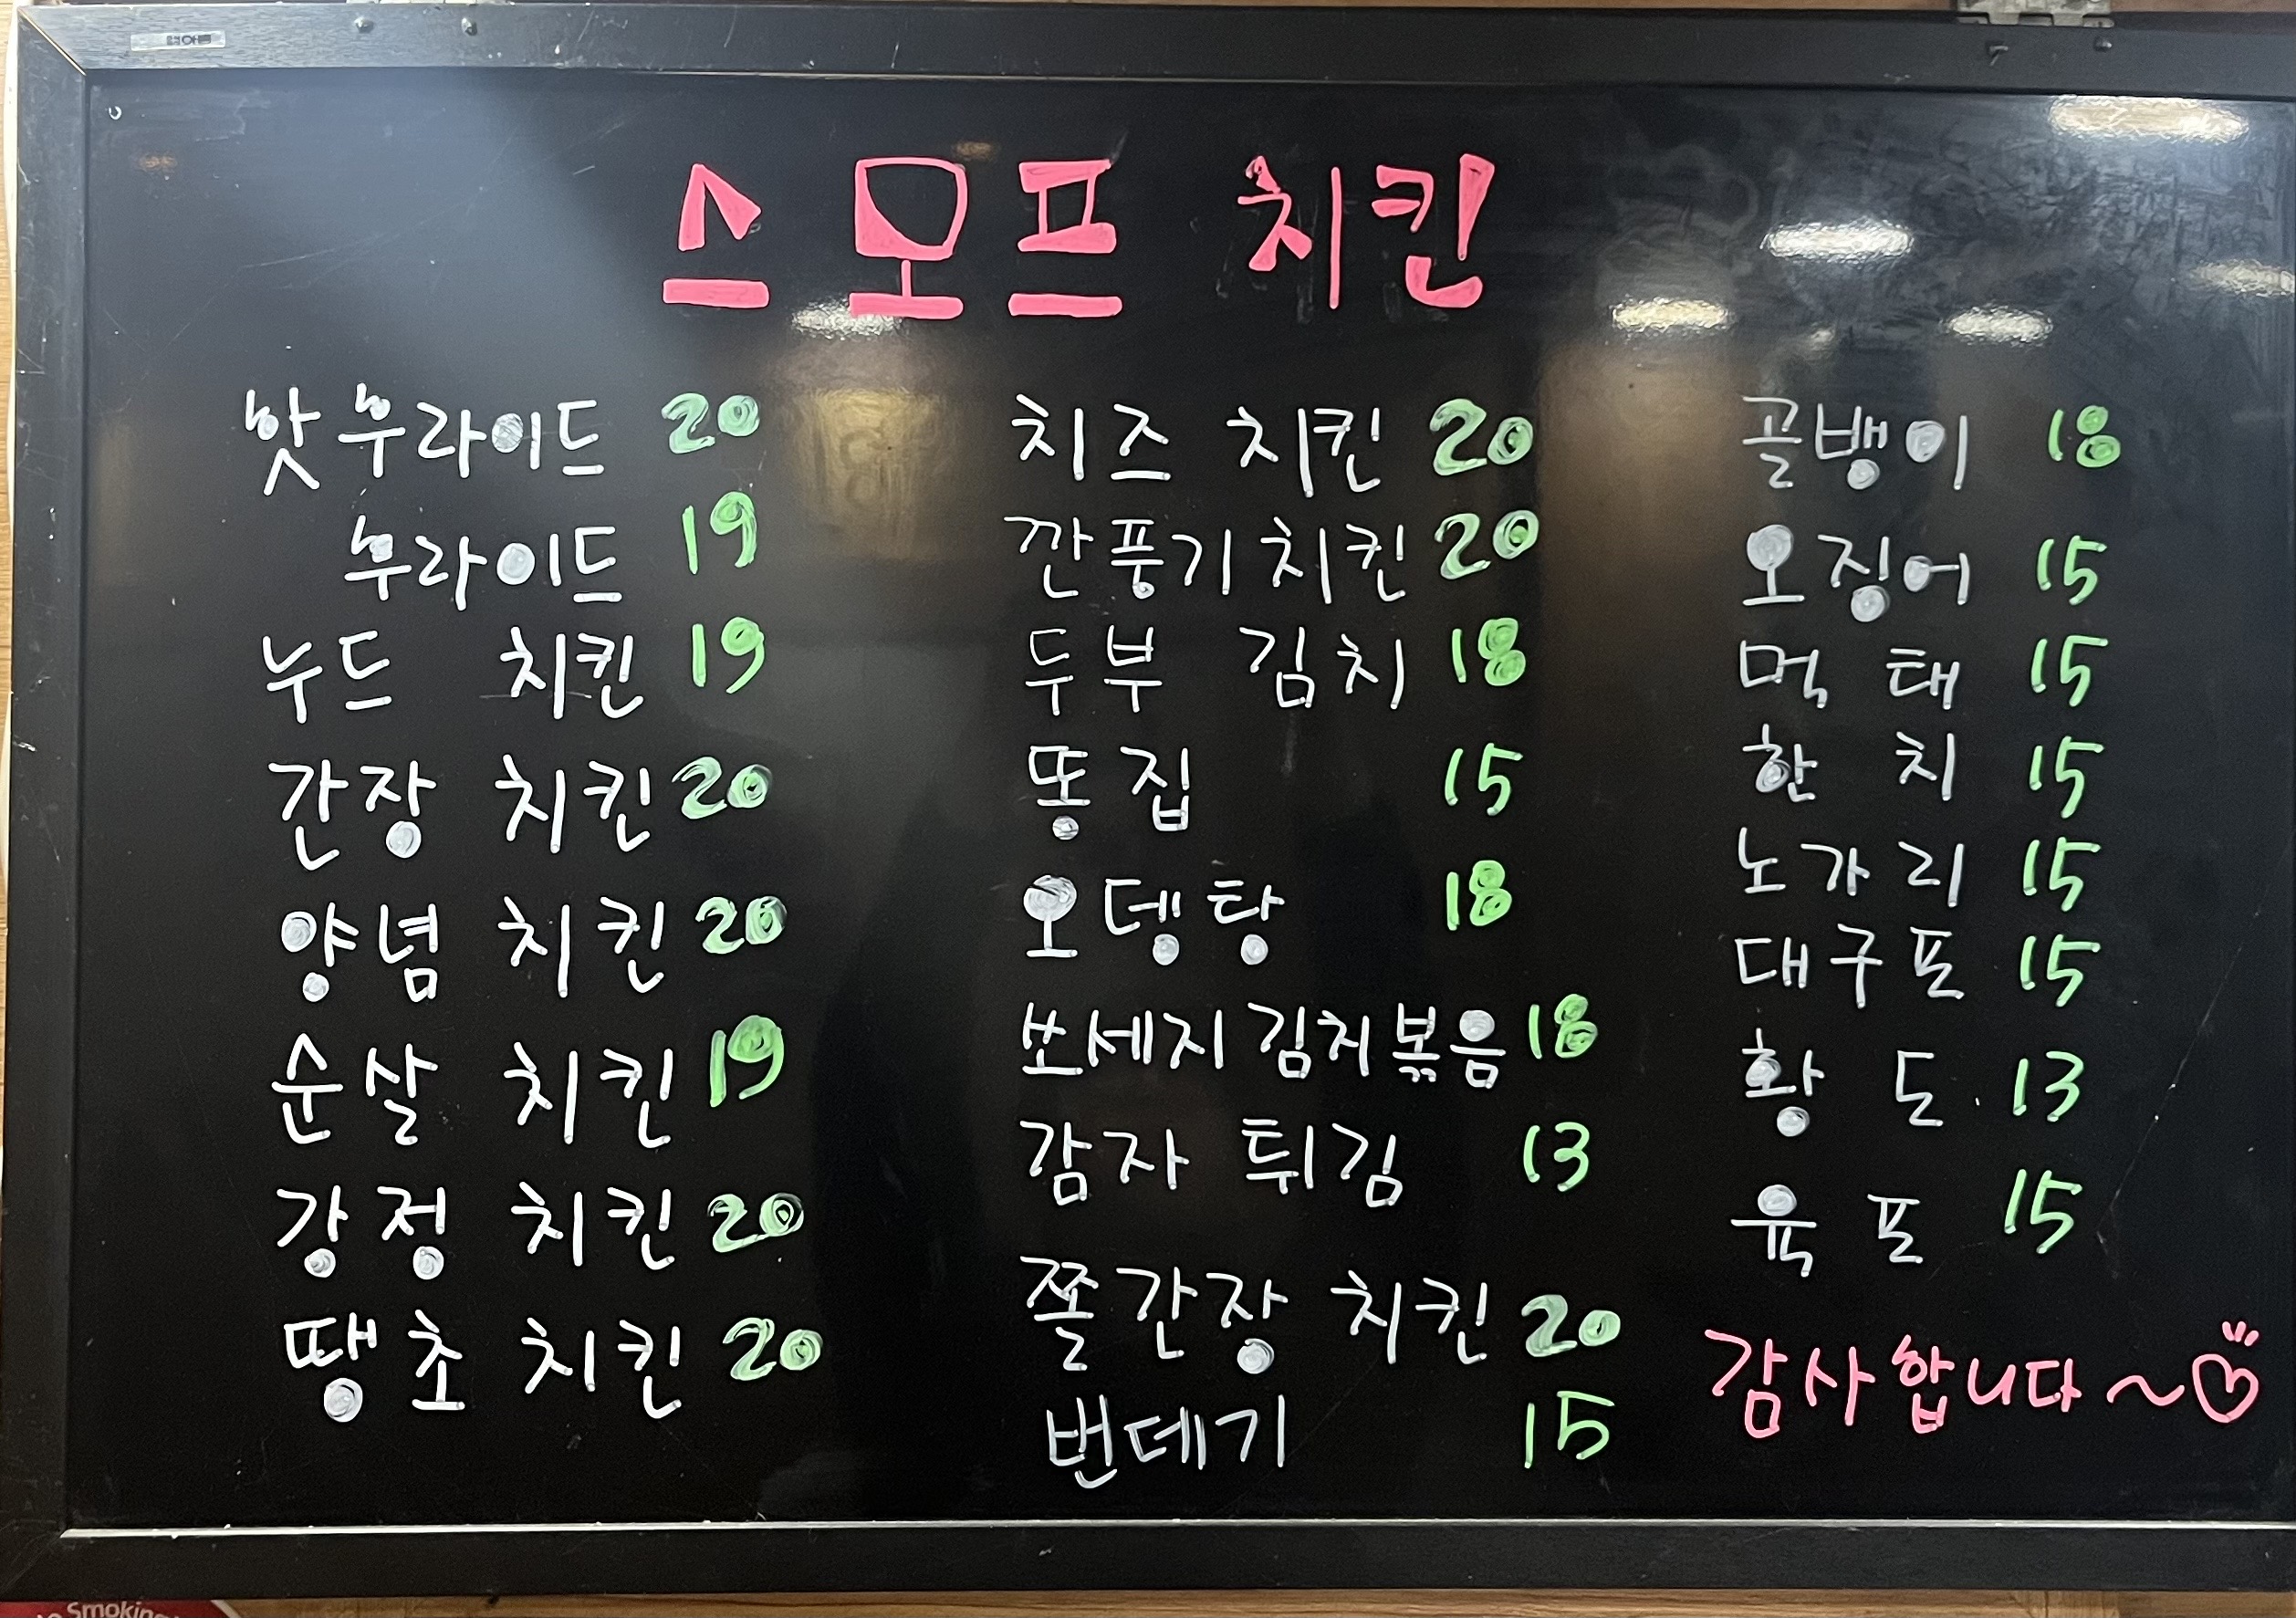 스모프 치킨
핫후라이드 20
후라이드 19
누드 치킨 19
간장 치킨 20
양념 치킨 20
순살 치킨 19
강정 치킨 20
땡초 치킨 20
치즈 치킨 20
깐풍기 치킨 20
두부 김치 18
똥집 15
오뎅탕 18
쏘세지 김치볶음 18
감자 튀김 13
쫄간장 치킨 20
번데기 15
골뱅이 18
오징어 15
먹태 15
한치 15
노가리 15
대구포 15
황도 13
육포 15
감사합니다~♡
Smoking